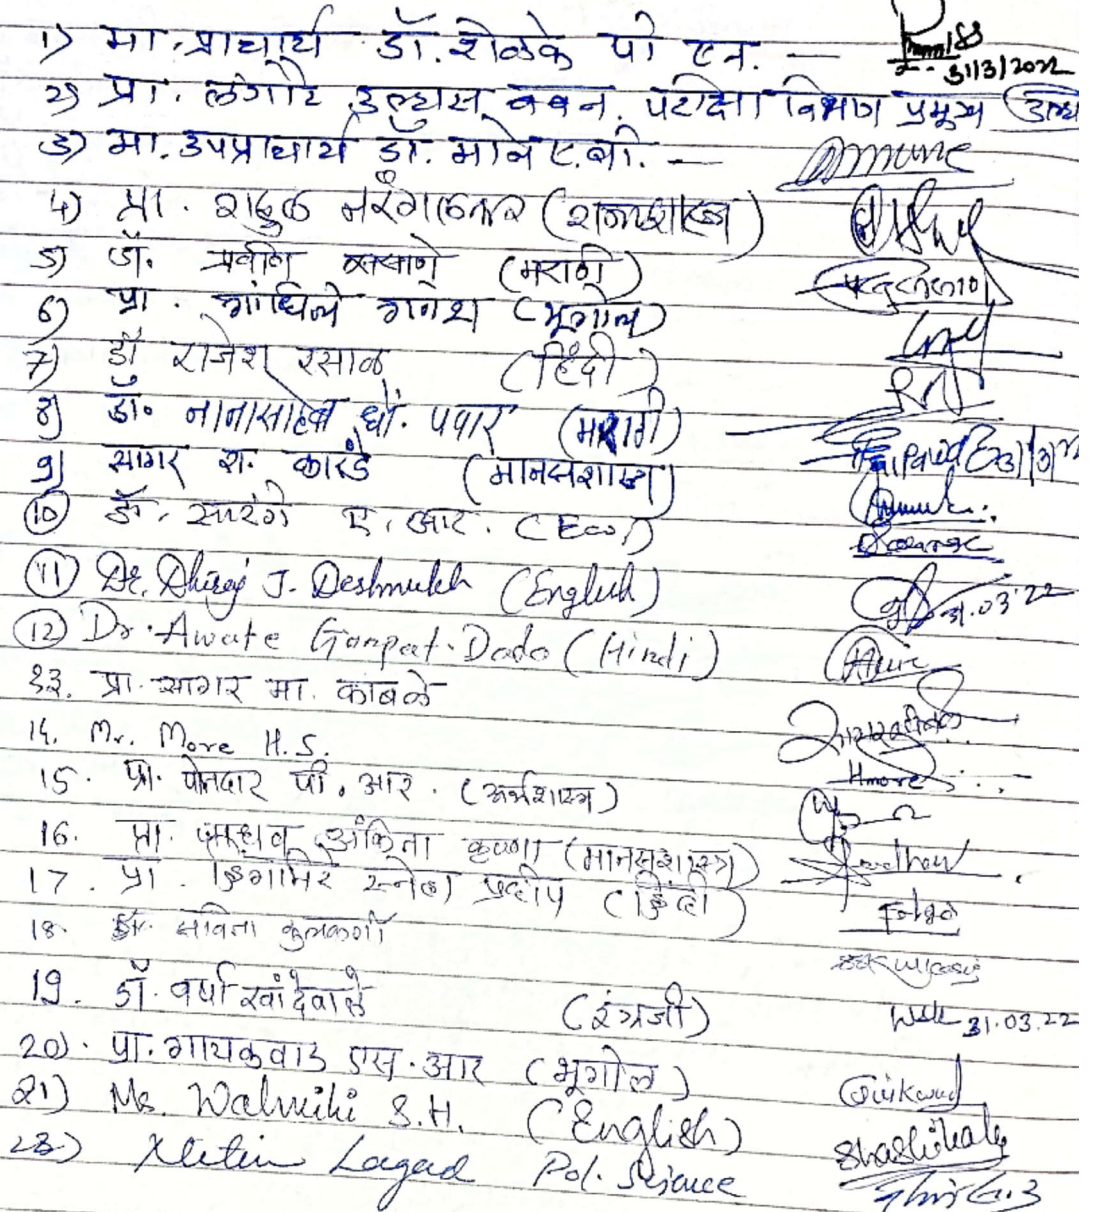 1) मा. प्राचार्य डॉ. शेळके पी एन. — 31/3/2022
2) प्रा. लंगोटे उल्हास बबन. परीक्षा विभाग प्रमुख
3) मा. उपप्राचार्य डॉ. माने ए.बी. —
4) प्रा. शार्दुल नरंगलकर (राज्यशास्त्र)
5) डॉ. प्रवीण ससाणे (मराठी)
6) प्रा. गांधिले गणेश (भूगोल)
7) डॉ राजेश रसाळ (हिंदी)
8) डॉ. नानासाहेब धों. पवार (मराठी)
9) सागर श. कारंडे (मानसशास्त्र)
10 डॉ. सारंगे ए. आर. (Eco)
11 Dr. Dhiraj J. Deshmukh (English) 31.03.22
12 Dr. Awate Ganpat Dada (Hindi)
१३. प्रा. सागर मा. कांबळे
14. Mr. More H.S. Hmore
15. प्रा. पोतदार पी. आर. (अर्थशास्त्र)
16. प्रा. जाधव अंकिता कृष्णा (मानसशास्त्र)
17. प्रा. हिंगमिरे स्नेहा प्रदीप (हिंदी)
18. डॉ. सविता कुलकर्णी
19. डॉ. वर्षा खांदेवाले (इंग्रजी) 31.03.22
20). प्रा. गायकवाड एस. आर (भूगोल) Gaikwad
21) Ms. Walmiki S.H. (English)
23) Nitin Lagad Pol. Science